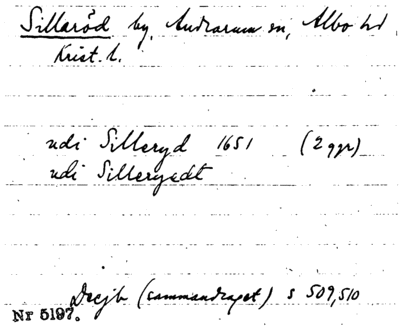 Sillaröd by, Andrarum sn, Albo hd
Krist. l.
udi Silleryd 1651 (2 ggr)
udi Silleryedt
Decjb (sammandraget) s 509,510
Nr 5197.